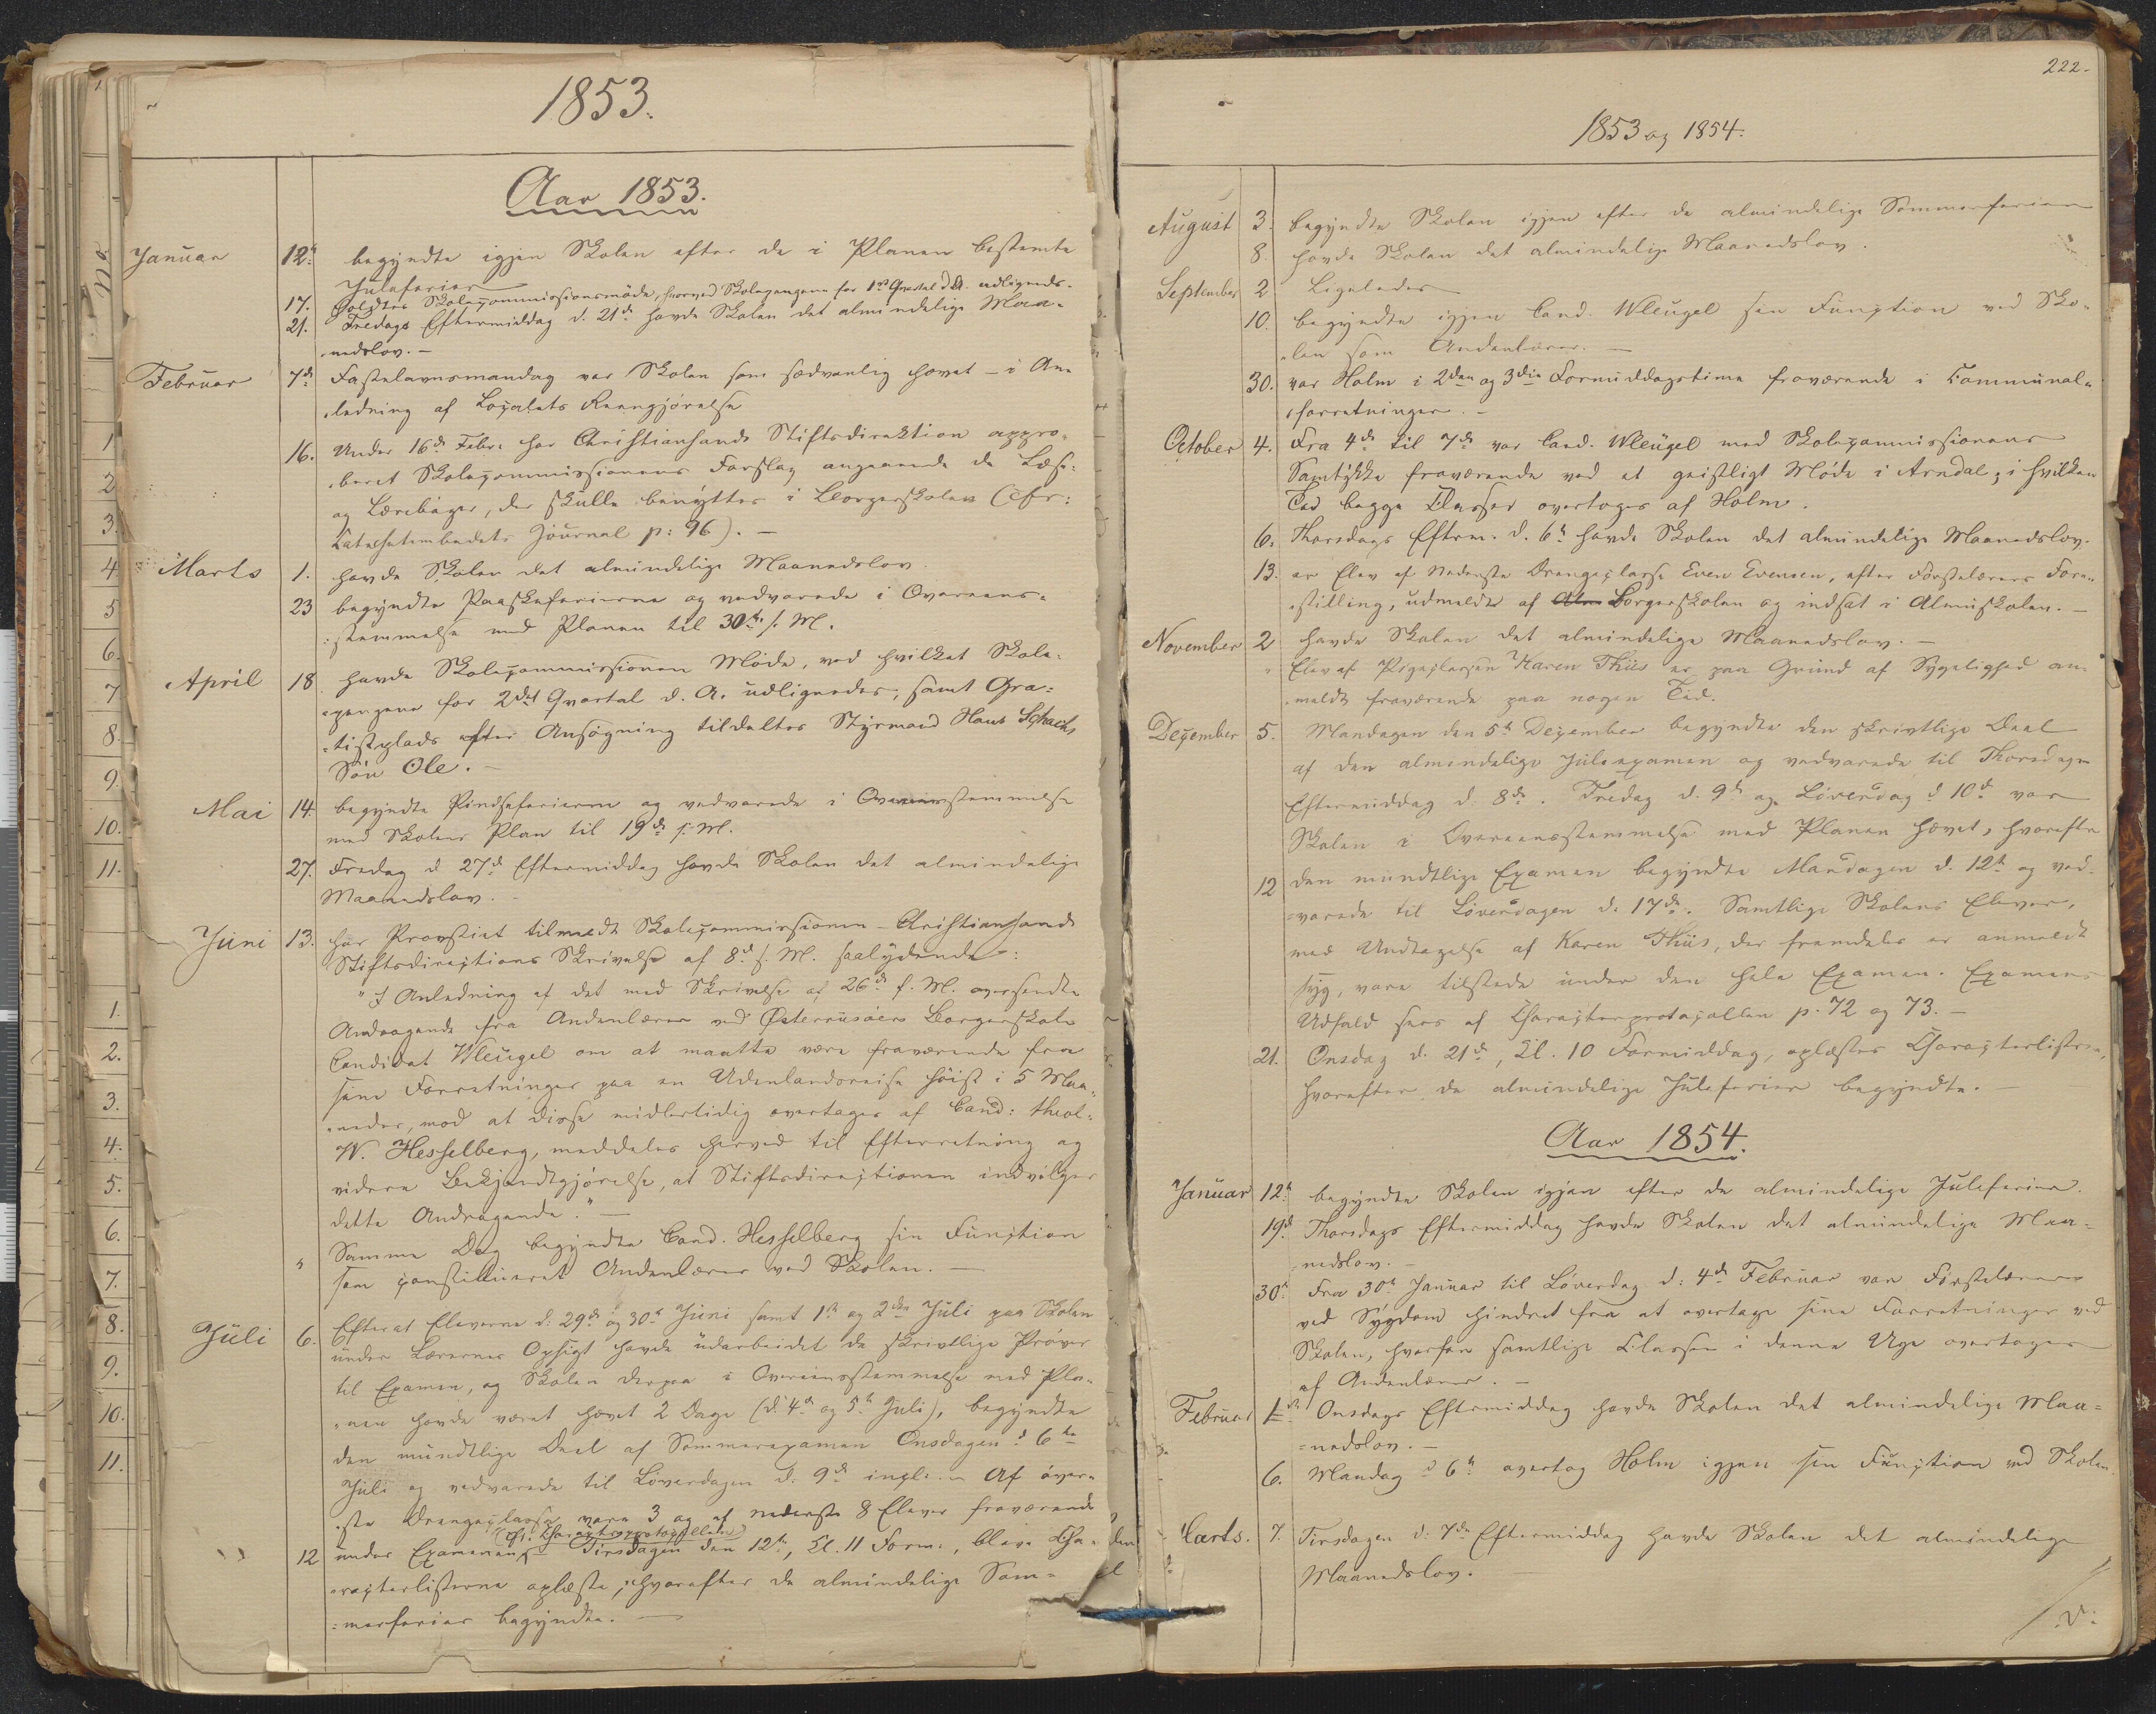 1853.
Aar 1853.
Januar 12te begyndte igjen Skolen efter de i Planen bestemte
Juleferier
17. holdtes Skolecommissionsmöde, hvorved Skolepengene for 1ste Qvartal d. A. udlignedes.
21. Fredags Eftermiddag d. 21de havde Skolen det almindelige Maa-
nedslov. —
Februar 7de Fastelavnsmandag var Skolen som sædvanlig hævet — i An-
ledning af Localets Reengjörelse
16. Under 16de Febr. har Christiansands Stiftsdirektion appro-
beret Skolecommissionens Forslag angaaende de Læse-
og Lærebøger, der skulle benyttes i Borgerskolen (cfr:
Catechetembedets Journal p: 96). —
Marts 1. havde Skolen det almindelige Maanedslov.
23 begyndte Paaskeferierne og vedvarede i Overeens-
stemmelse med Planen til 30te s. M.
April 18. havde Skolecommissionen Møde, ved hvilket Skole-
pengene for 2det Qvartal d. A. udlignedes, samt Gra-
tistplads efter Ansögning tildeltes Styrmand Hans Schachs
Sön Ole. —
Mai 14. begyndte Pindseferierne og vedvarede i Overeensstemmelse
med Skolens Plan til 19de s. M.
27. Fredag d 27de Eftermiddag havde Skolen det almindelige
Maanedslov. —
Juni 13. har Provstiet tilmeldt Skolecommissionen Christiansands
Stiftsdirections Skrivelse af 8de s. M. saalydende:
"I Anledning af det med Skrivelse af 26de f. M. oversendte
Andragende fra Andenlærer ved Østerriisöers Borgerskole
Candidat Wleügel om at maatte være fraværende fra
sine Forretninger paa en Udenlandsreise höist i 5 Maa-
neder, mod at disse midlertidig overtages af Cand: theol.
W. Hesselberg, meddeles herved til Efterretning og
videre Bekjendtgjörelse, at Stiftsdirectionen indvilger
dette Andragende." —
" Samme Dag begyndte Cand. Hesselberg sin Function
som constitueret Andenlærer ved Skolen. —
Juli 6. Efterat Eleverne d: 29de og 30te Juni samt 1ste og 2den Juli paa Skolen
under Lærernes Opsigt havde udarbeidet de skrivtlige Pröver
til Examen, og Skolen derpaa i Overeensstemmelse med Pla-
nen havde været hævet 2 Dage (d. 4de og 5te Juli), begyndte
den mundtlige Deel af Sommerexamen Onsdagen d 6te
Juli og vedvarede til Löverdagen d. 9de incl. — Af över-
ste Drengeclasse vare 3 og af nederste 8 Elever fraværende
(cfr. Characterprotocollen)
12 under Examenen. — Tirsdagen den 12te, Kl. 11 Form., bleve Cha-
racterlisterne oplæste, hvorefter de almindelige Som-
merferier begyndte. —
222.
1853 og 1854.
August 3. begyndte Skolen igjen efter de almindelige Sommerferier
8. havde Skolen det almindelige Maanedslov.
September 2 Ligeledes
10. begyndte igjen Cand. Wleügel sin Function ved Sko-
len som Andenlærer. —
30. var Holm i 2den og 3die Formiddagstime fraværende i Communal-
forretninger. —
October 4. Fra 4de til 7de var Cand. Wleügel med Skolecommissionens
Samtykke fraværende ved et geistligt Möde i Arndal; i hvilken
Tid begge Classer overtoges af Holm.
6. Thorsdags Efterm. d. 6te havde Skolen det almindelige Maanedslov.
13. er Elev af nederste Drengeclasse Even Evensen, efter Förstelærers Fore-
stilling, udmeldt af Alm Borgerskolen og indsat i Almuskolen. —
November 2 havde Skolen det almindelige Maanedslov. —
" Elev af Pigeclassen Karen Thiis er paa Grund af Sygelighed an-
meldt fraværende paa nogen Tid.
December 5. Mandagen den 5te December begyndte den skrivtlige Deel
af den almindelige Juleexamen og vedvarede til Thorsdagen
Eftermiddag d. 8de. Fredag d. 9de og Löverdag d 10de var
Skolen i Overeensstemmelse med Planen hævet, hvorefter
12 den mundtlige Examen begyndte Mandagen d. 12te og ved-
varede til Löverdagen d. 17de. Samtlige Skolens Elever,
med Undtagelse af Karen Thiis, der fremdeles er anmeldt
syg, vare tilstede under den hele Examen. Examens
Udfald sees af Characterprotocollen p. 72 og 73. —
21. Onsdag d. 21de, Kl. 10 Formiddag, oplæstes Characterlisterne,
hvorefter de almindelige Juleferier begyndte. —
Aar 1854.
Januar 12te begyndte Skolen igjen efter de almindelige Juleferier.
19de Thorsdags Eftermiddag havde Skolen det almindelige Maa-
nedslov. —
30te Fra 30te Januar til Löverdag d: 4de Februar var Förstelæreren
ved Sygdom hindret fra at overtage sine Forretninger ved
Skolen, hvorfor samtlige Classer i denne Uge overtoges
af Andenlærer. —
Februar 1ste Onsdags Eftermiddag havde Skolen det almindelige Maa-
nedslov. —
6. Mandag d 6te overtog Holm igjen sin Function ved Skolen.
Marts. 7. Tirsdagen d: 7de Eftermiddag havde Skolen det almindelige
Maanedslov. —
V: